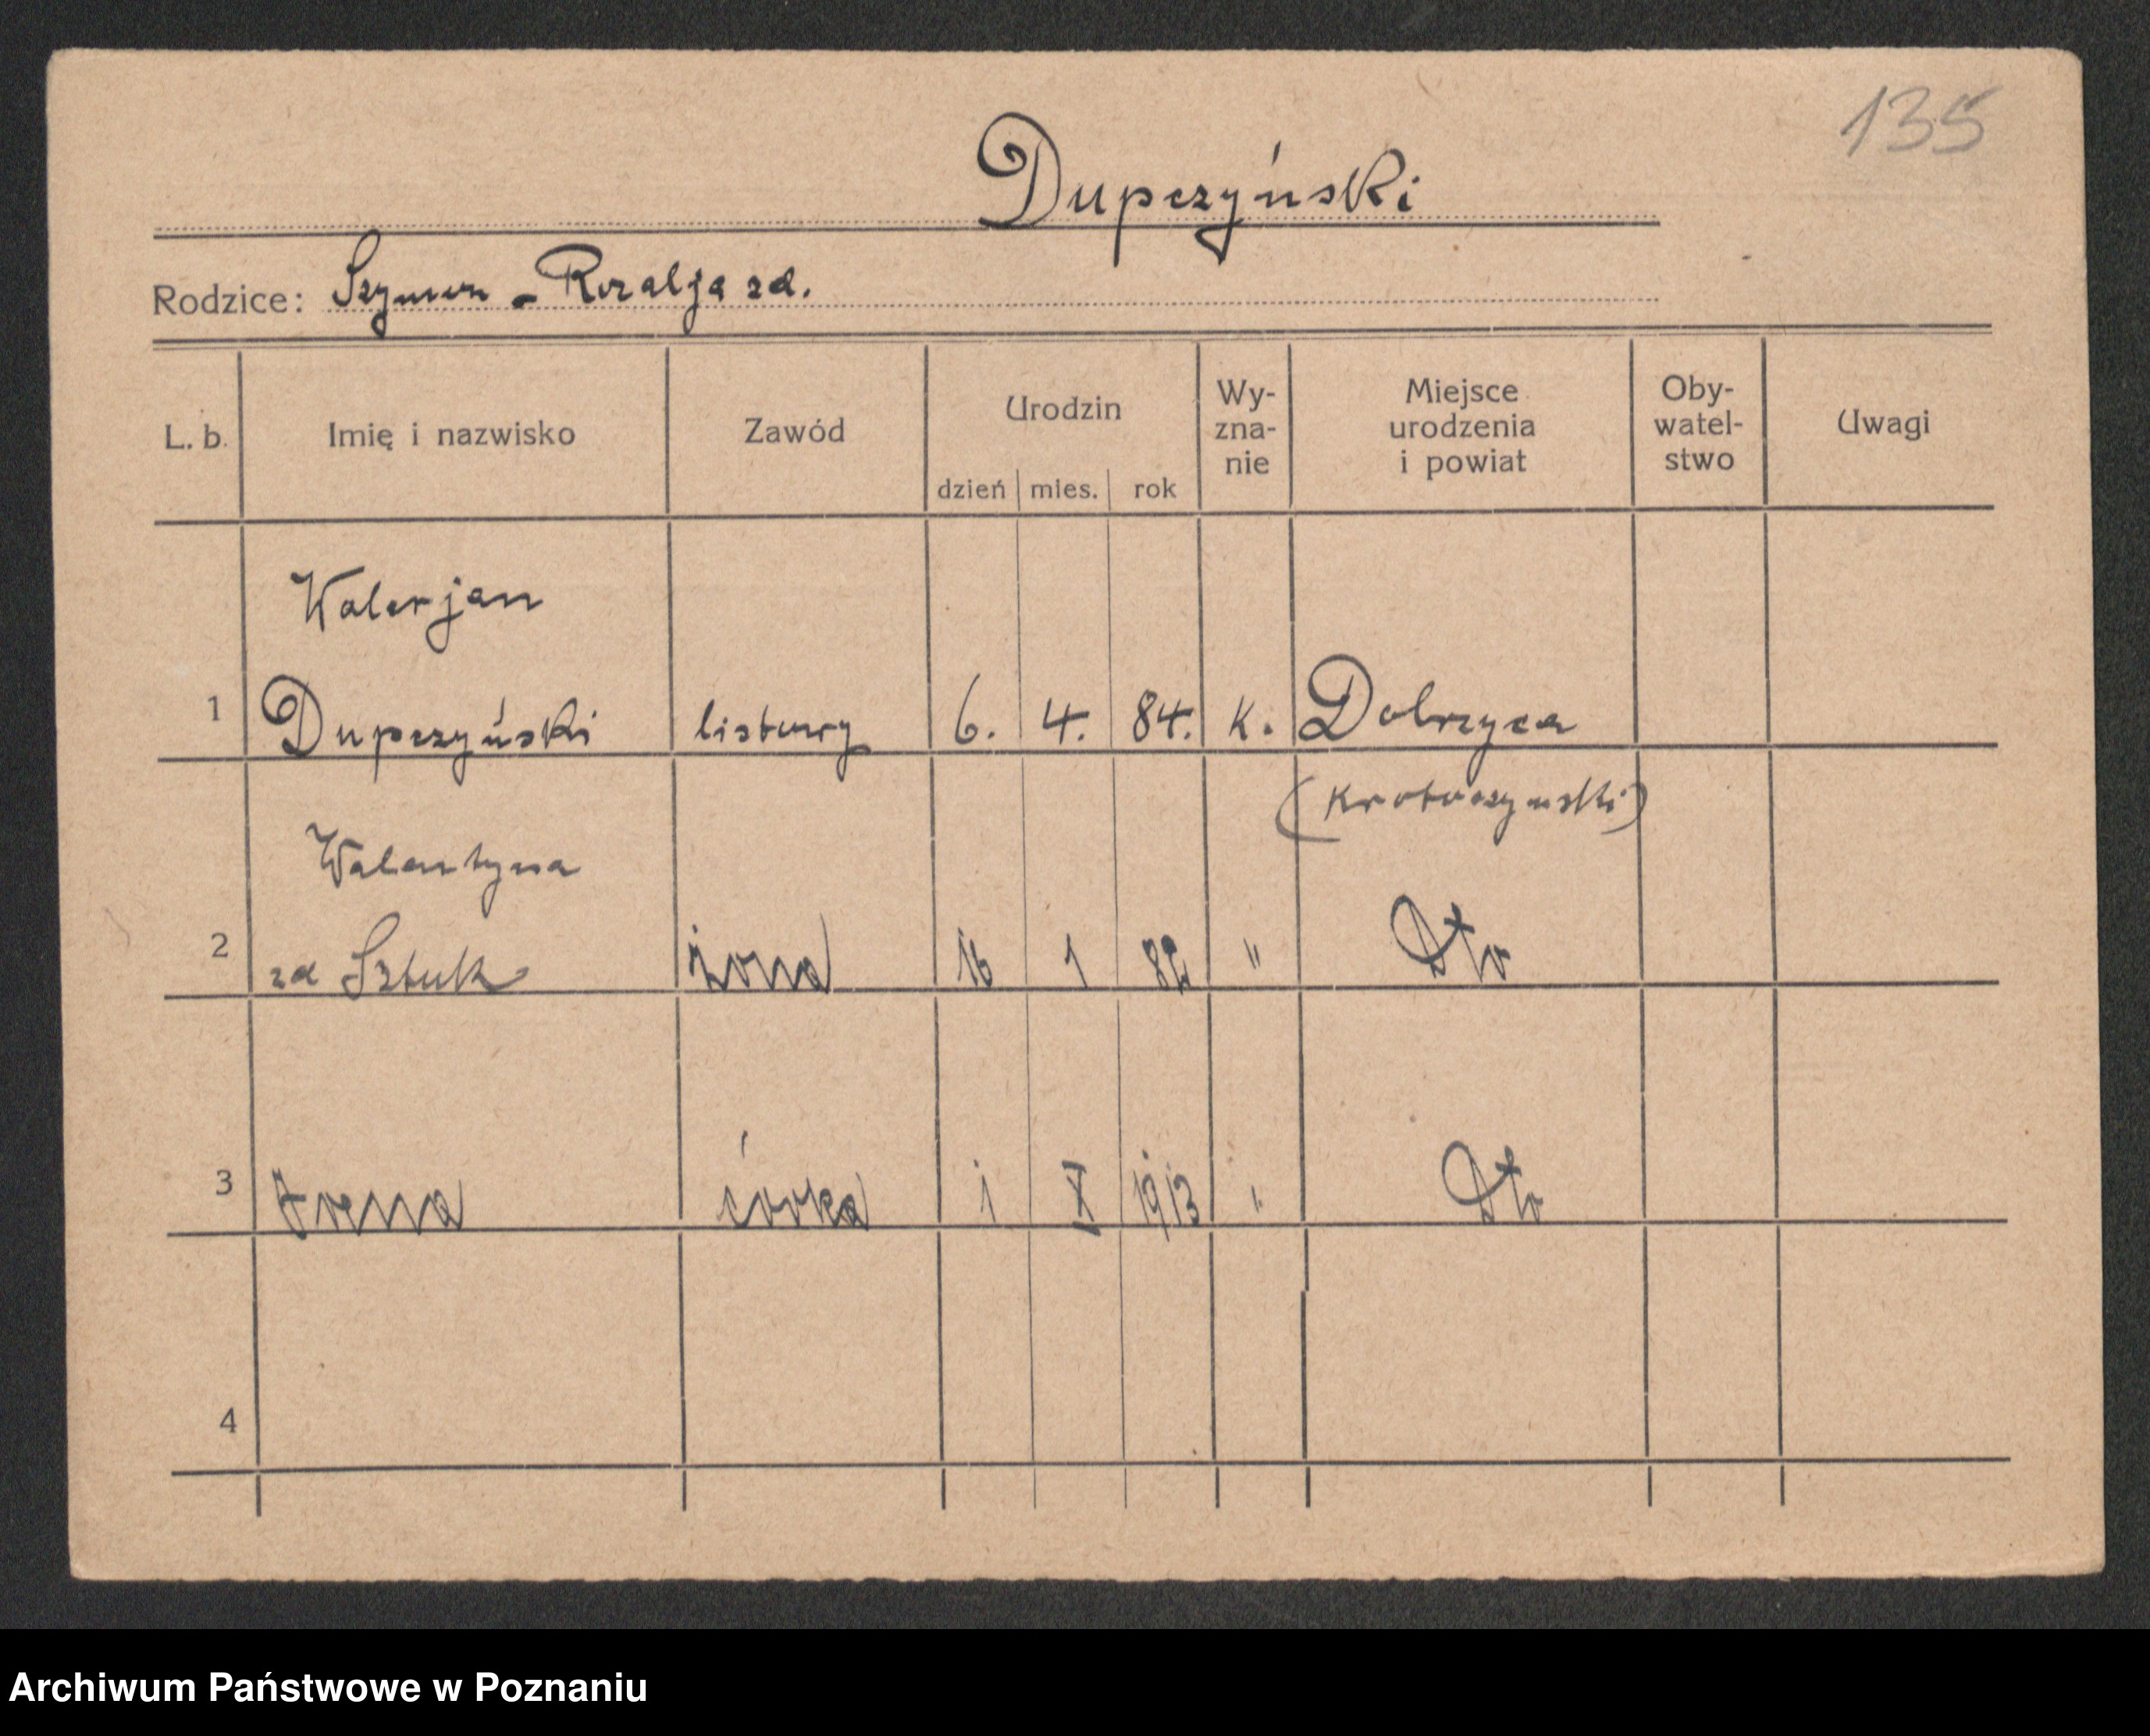 135
Dupczyński
Rodzice: Szymon - Rozalja zd.
L. b. Imię i nazwisko Zawód Urodzin Wy-zna-nie Miejsce urodzenia i powiat Oby-watel-stwo Uwagi
dzień mies. rok
Walerjan
1 Dupczyński listowy 6. 4. 84. K. Dobrzyca
(Krotoszyński)
Walentyna
2 zd Sztuk żona 16 1 82 " Dto
3 Irena córka 1 X 1913 " Dto
4
Archiwum Państwowe w Poznaniu